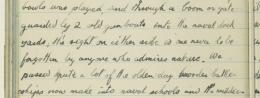 was played and through a boom or gate
guarded by 2 old gun boats onto the naval dock
yards, the sight on either side is one never to be
forgotten by anyone who admires nature. We
passed quite a lot of the olden day wooden battle
ships now made into naval schools and the